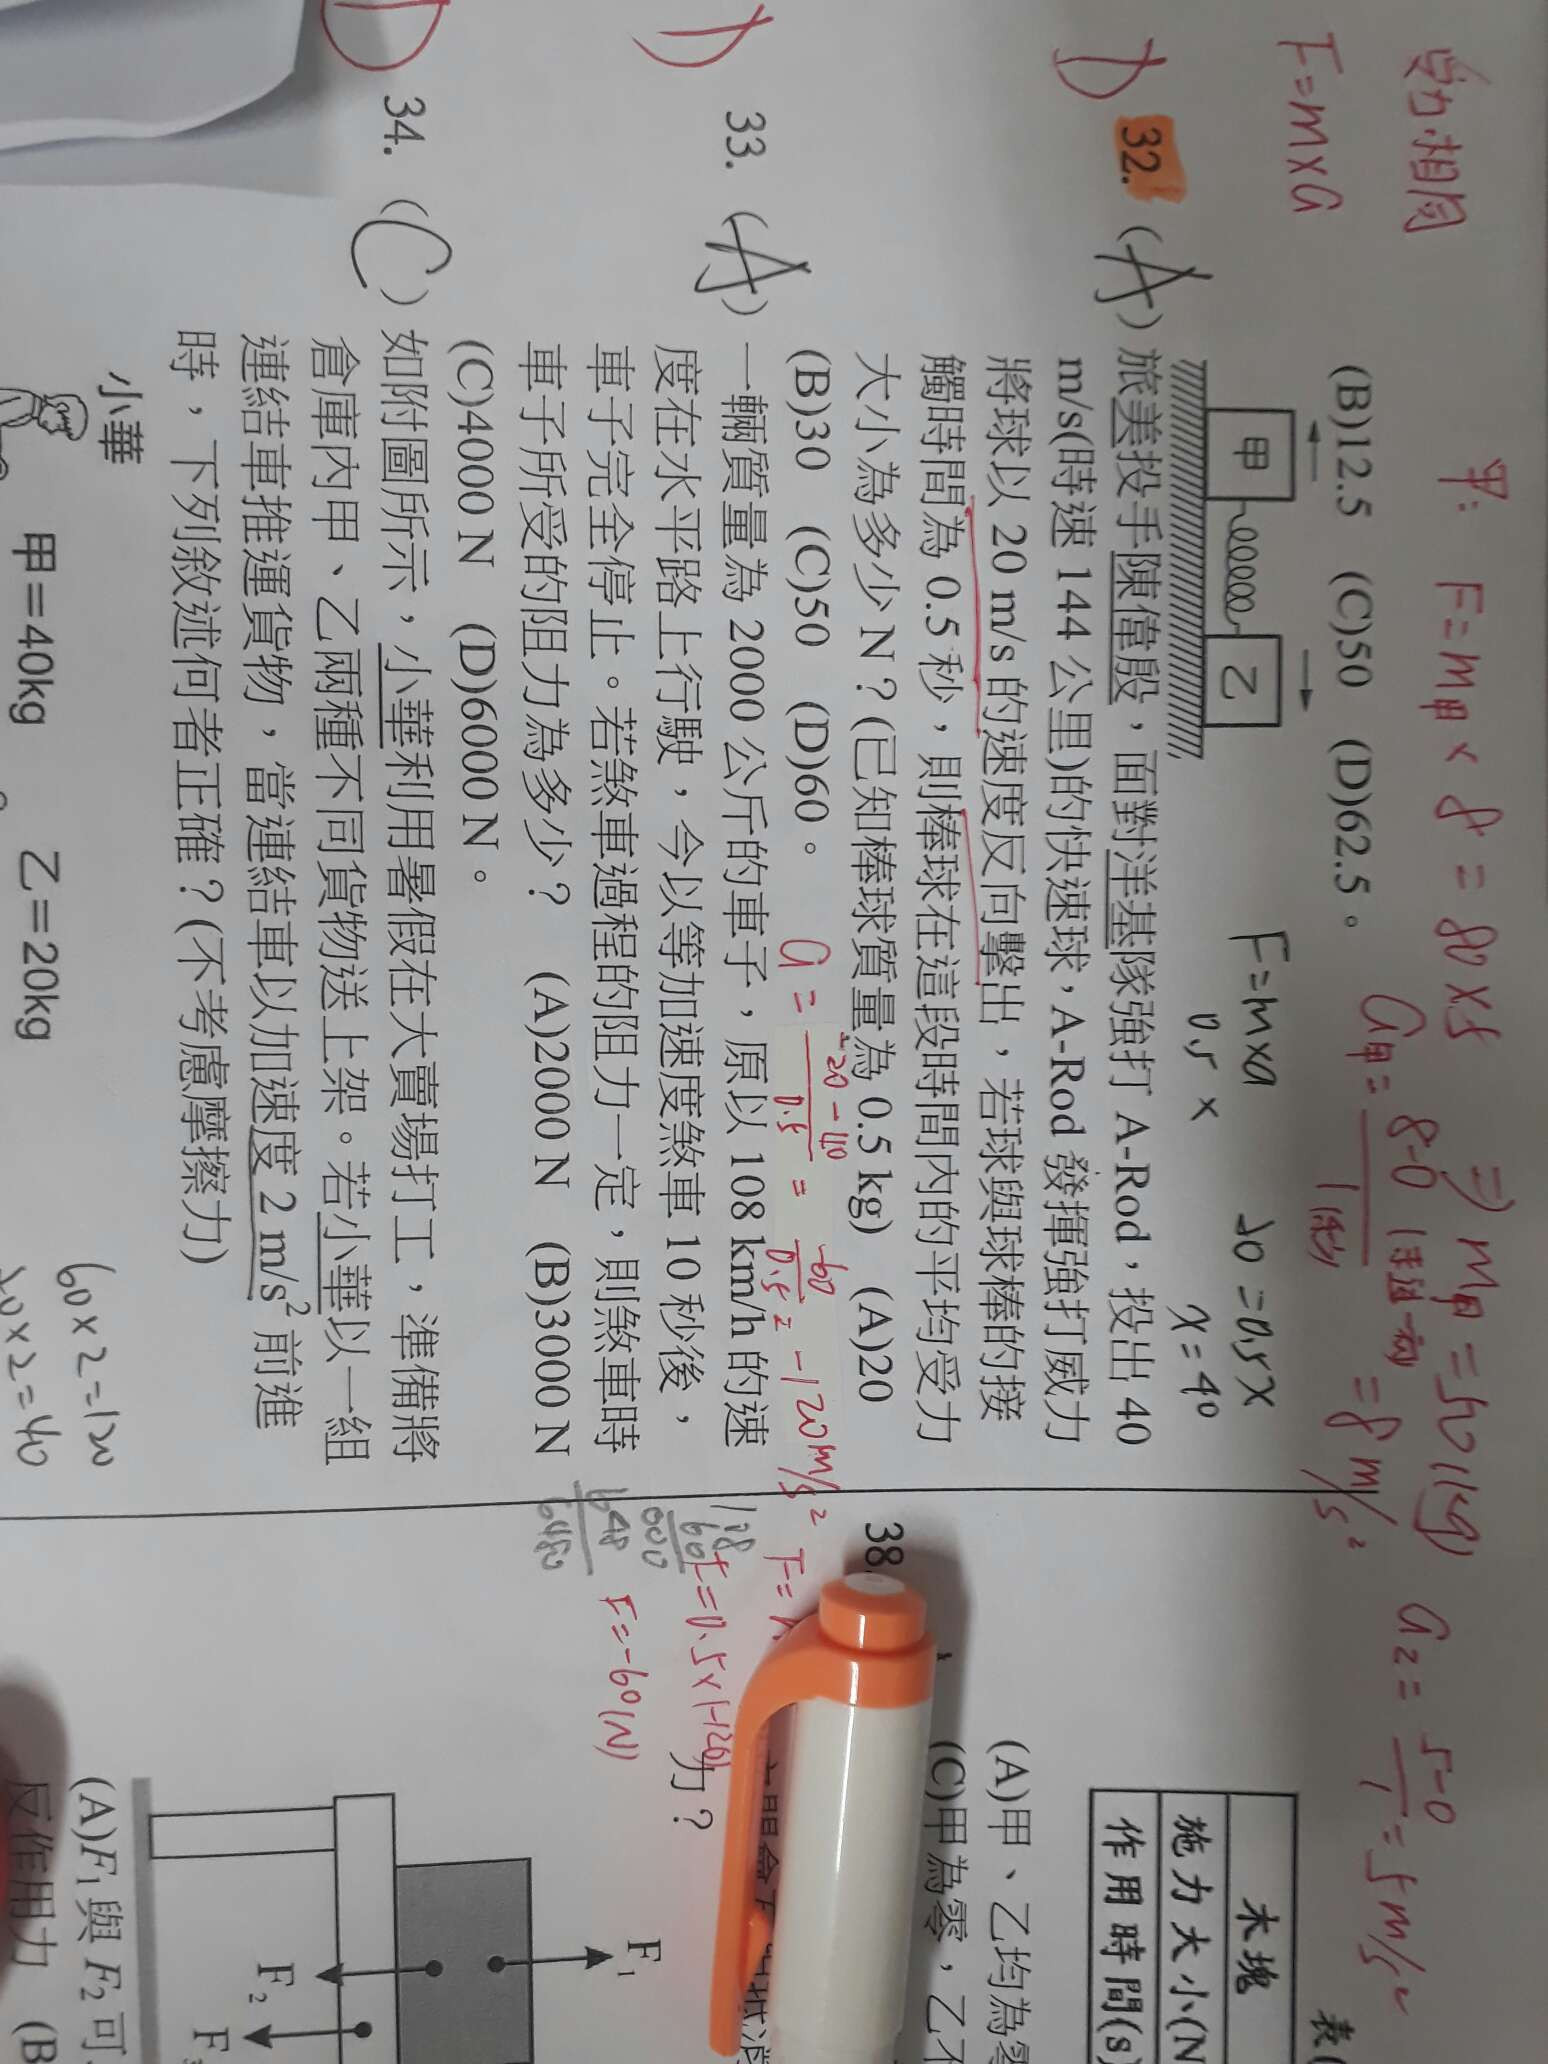 受力相同
F=m×a
甲: F=m甲×8=80×5 ⇒ m甲=50(kg)
a甲=8-0/1(秒) 經過一秒 =8m/s²
a乙=5-0/1=5m/s²
(B)12.5 (C)50 (D)62.5。
甲
乙
F=m×a
0.5 ×
20=0.5X
X=40
D
32. (A) 旅美投手陳偉殷，面對洋基隊強打 A-Rod，投出 40
m/s(時速 144 公里)的快速球，A-Rod 發揮強打威力
將球以 20 m/s 的速度反向擊出，若球與球棒的接
觸時間為 0.5 秒，則棒球在這段時間內的平均受力
大小為多少 N？(已知棒球質量為 0.5 kg) (A)20
(B)30 (C)50 (D)60。
a=-20-40/0.5=-60/0.5=-120m/s²
F=0.5×(-120)
F=-60(N)
D
33. (A) 一輛質量為 2000 公斤的車子，原以 108 km/h 的速
度在水平路上行駛，今以等加速度煞車 10 秒後，
車子完全停止。若煞車過程的阻力一定，則煞車時
車子所受的阻力為多少？ (A)2000 N (B)3000 N
(C)4000 N (D)6000 N。
108
60
000
648
6480
D
34. (C) 如附圖所示，小華利用暑假在大賣場打工，準備將
倉庫內甲、乙兩種不同貨物送上架。若小華以一組
連結車推運貨物，當連結車以加速度 2 m/s² 前進
時，下列敘述何者正確？(不考慮摩擦力)
小華
甲=40kg
乙=20kg
60×2=120
20×2=40
表(
木塊
施力大小(N
作用時間(s)
(A)甲、乙均為零
(C)甲為零，乙不
38.
力？
F₁
F₂
(A)F₁與 F₂可
反作用力 (B